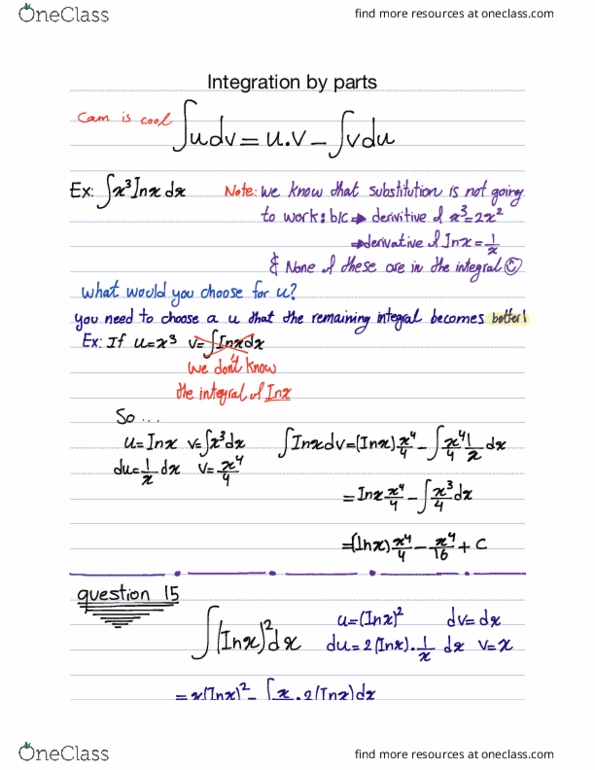 OneClass
find more resources at oneclass.com
Integration by parts
Cam is cool
∫udv = u.v – ∫vdu
Ex: ∫x³lnx dx
Note: we know that substitution is not going
to work: b/c → derivitive of x³=2x²
→ derivative of lnx = 1/x
& None of these are in the integral
What would you choose for u?
you need to choose a u that the remaining integral becomes better!
Ex: If u=x³ v=∫lnxdx
We don't know
the integral of lnx
So...
u=lnx v=∫x³dx ∫lnxdv=(lnx)x⁴/4 – ∫x⁴/4 1/x dx
du=1/x dx v=x⁴/4
=lnx x⁴/4 – ∫x³/4 dx
=(lnx)x⁴/4 – x⁴/16 + C
question 15
∫(lnx)²dx u=(lnx)² dv=dx
du=2(lnx).1/x dx v=x
=x(lnx)² – ∫x.2(lnx)dx
OneClass
find more resources at oneclass.com